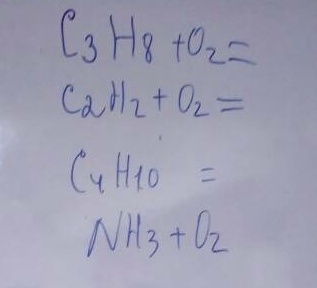 C3H8 + O2 =
C2H2 + O2 =
C4H10 =
NH3 + O2